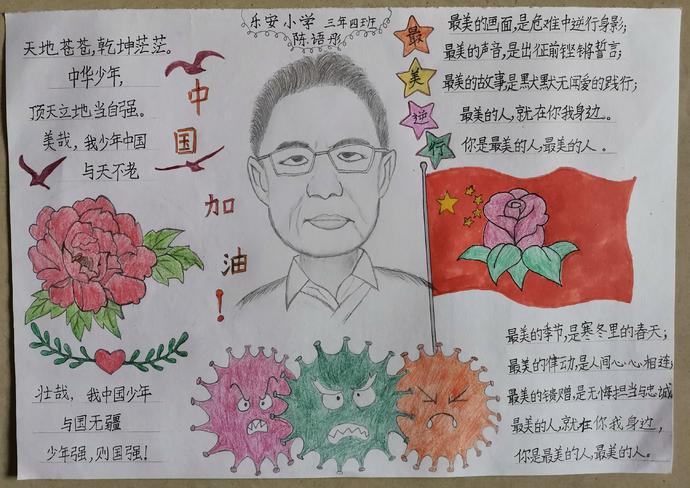 乐安小学 三年四班
陈语彤
天地苍苍,乾坤茫茫。
中华少年,
顶天立地当自强。
美哉,我少年中国
与天不老
中国加油!
壮哉,我中国少年
与国无疆
少年强,则国强!
最美逆行
最美的画面,是危难中逆行身影;
最美的声音,是出征前铿锵誓言;
最美的故事是默默无闻爱的践行;
最美的人,就在你我身边。
你是最美的人,最美的人。
最美的季节,是寒冬里的春天;
最美的律动,是人间心心相连;
最美的馈赠,是无悔担当与忠诚
最美的人,就在你我身边,
你是最美的人,最美的人。